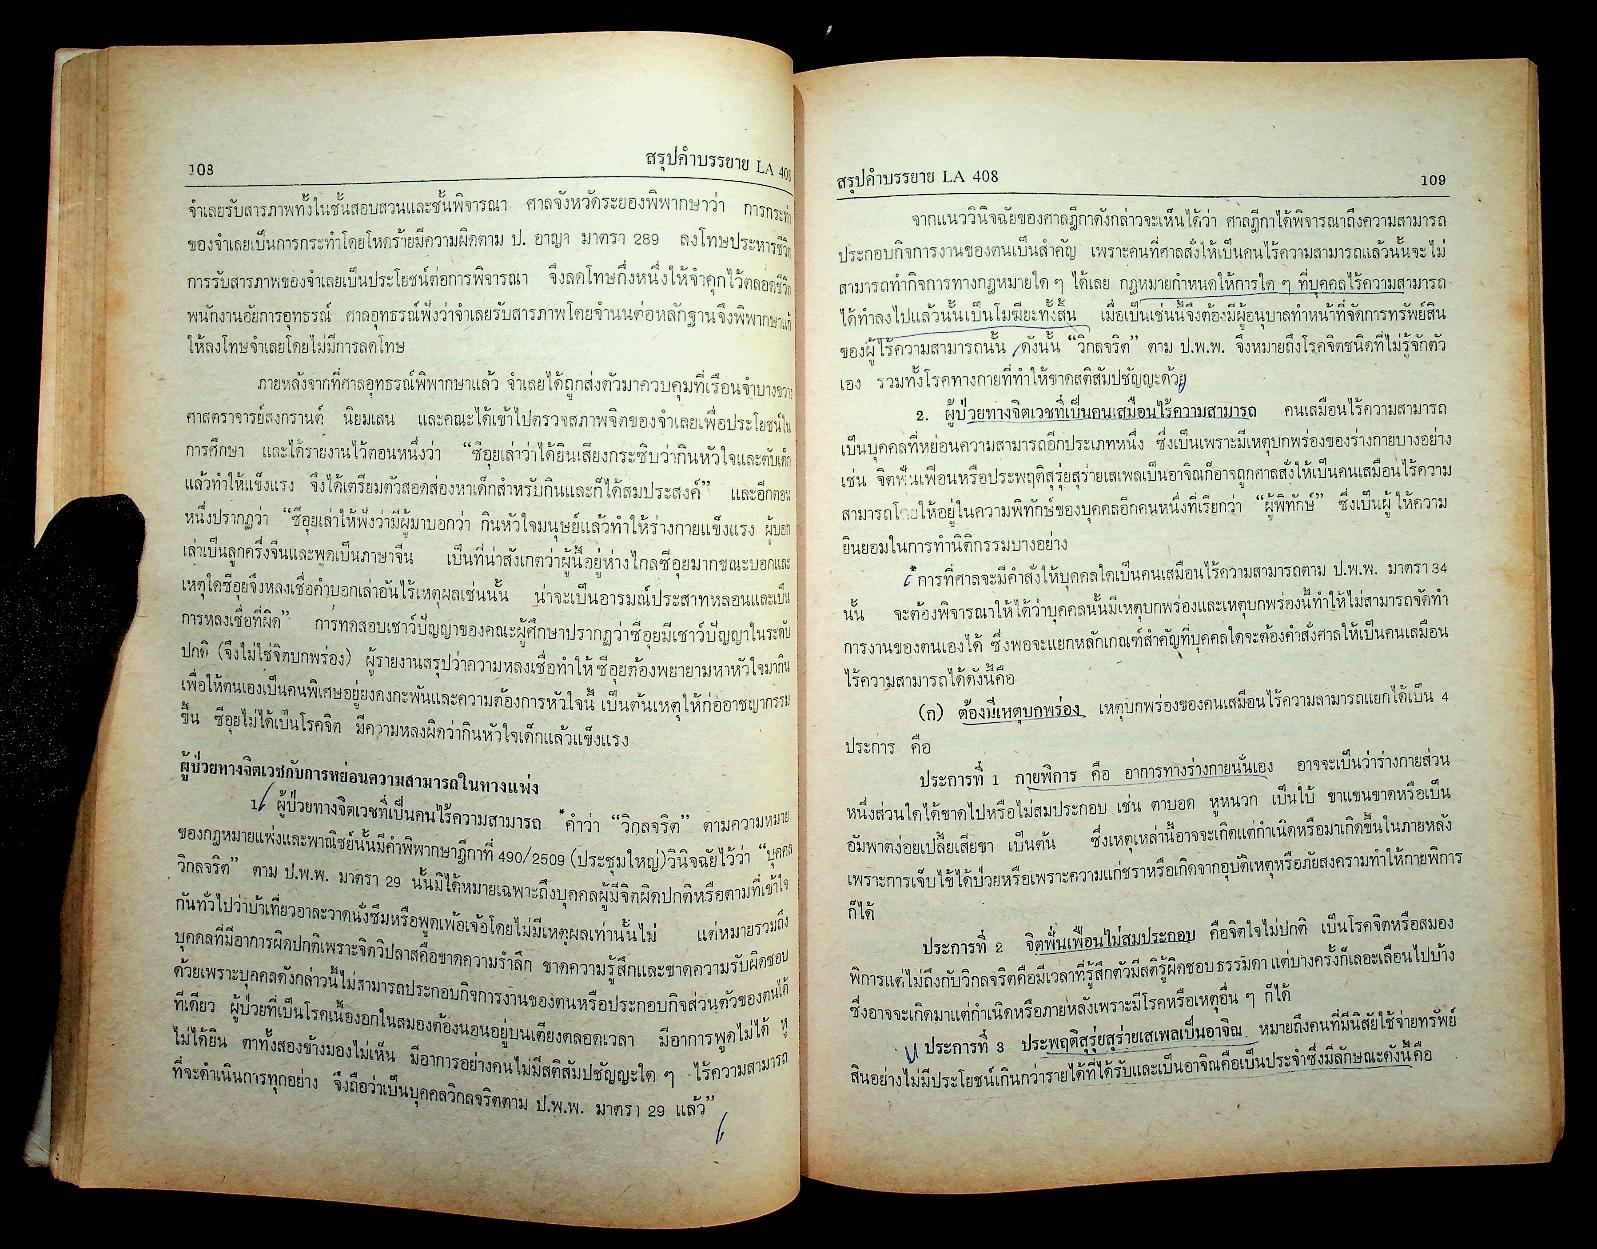 108
สรุปคำบรรยาย LA 408
จำเลยรับสารภาพทั้งในชั้นสอบสวนและชั้นพิจารณา ศาลจังหวัดระยองพิพากษาว่า การกระทำ
ของจำเลยเป็นการกระทำโดยโหดร้ายมีความผิดตาม ป. อาญา มาตรา 289 ลงโทษประหารชีวิต
การรับสารภาพของจำเลยเป็นประโยชน์ต่อการพิจารณา จึงลดโทษกึ่งหนึ่งให้จำคุกไว้ตลอดชีวิต
พนักงานอัยการอุทธรณ์ ศาลอุทธรณ์ฟังว่าจำเลยรับสารภาพโดยจำนนต่อหลักฐานจึงพิพากษาแก้
ให้ลงโทษจำเลยโดยไม่มีการลดโทษ
ภายหลังจากที่ศาลอุทธรณ์พิพากษาแล้ว จำเลยได้ถูกส่งตัวมาควบคุมที่เรือนจำบางขวาง
ศาสตราจารย์สงกรานต์ นิยมเสน และคณะได้เข้าไปตรวจสภาพจิตของจำเลยเพื่อประโยชน์ใน
การศึกษา และได้รายงานไว้ตอนหนึ่งว่า “ซีอุยเล่าว่าได้ยินเสียงกระซิบว่ากินหัวใจและตับเด็ก
แล้วทำให้แข็งแรง จึงได้เตรียมตัวสอดส่องหาเด็กสำหรับกินและก็ได้สมประสงค์” และอีกตอน
หนึ่งปรากฏว่า “ซีอุยเล่าให้ฟังว่ามีผู้มาบอกว่า กินหัวใจมนุษย์แล้วทำให้ร่างกายแข็งแรง ผู้บอก
เล่าเป็นลูกครึ่งจีนและพูดเป็นภาษาจีน เป็นที่น่าสังเกตว่าผู้นี้อยู่ห่างไกลซีอุยมากขณะบอกและ
เหตุใดซีอุยจึงหลงเชื่อคำบอกเล่าอันไร้เหตุผลเช่นนั้น น่าจะเป็นอารมณ์ประสาทหลอนและเป็น
การหลงเชื่อที่ผิด” การทดสอบเชาว์ปัญญาของคณะผู้ศึกษาปรากฏว่าซีอุยมีเชาว์ปัญญาในระดับ
ปกติ (จึงไม่ใช่จิตบกพร่อง) ผู้รายงานสรุปว่าความหลงเชื่อทำให้ซีอุยต้องพยายามหาหัวใจมากิน
เพื่อให้ตนเองเป็นคนพิเศษอยู่ยงคงกะพันและความต้องการหัวใจนี้ เป็นต้นเหตุให้ก่ออาชญากรรม
ขึ้น ซีอุยไม่ได้เป็นโรคจิต มีความหลงผิดว่ากินหัวใจเด็กแล้วแข็งแรง
ผู้ป่วยทางจิตเวชกับการหย่อนความสามารถในทางแพ่ง
1. ผู้ป่วยทางจิตเวชที่เป็นคนไร้ความสามารถ คำว่า “วิกลจริต” ตามความหมาย
ของกฎหมายแพ่งและพาณิชย์นั้นมีคำพิพากษาฎีกาที่ 490/2509 (ประชุมใหญ่)วินิจฉัยไว้ว่า “บุคคล
วิกลจริต” ตาม ป.พ.พ. มาตรา 29 นั้นมิได้หมายเฉพาะถึงบุคคลผู้มีจิตผิดปกติหรือตามที่เข้าใจ
กันทั่วไปว่าบ้าเที่ยวอาละวาดนั่งซึมหรือพูดเพ้อเจ้อโดยไม่มีเหตุผลเท่านั้นไม่ แต่หมายรวมถึง
บุคคลที่มีอาการผิดปกติเพราะจิตวิปลาสคือขาดความรำลึก ขาดความรู้สึกและขาดความรับผิดชอบ
ด้วยเพราะบุคคลดังกล่าวนี้ไม่สามารถประกอบกิจการงานของตนหรือประกอบกิจส่วนตัวของตนได้
ทีเดียว ผู้ป่วยที่เป็นโรคเนื้องอกในสมองต้องนอนอยู่บนเตียงตลอดเวลา มีอาการพูดไม่ได้ หู
ไม่ได้ยิน ตาทั้งสองข้างมองไม่เห็น มีอาการอย่างคนไม่มีสติสัมปชัญญะใด ๆ ไร้ความสามารถ
ที่จะดำเนินการทุกอย่าง จึงถือว่าเป็นบุคคลวิกลจริตตาม ป.พ.พ. มาตรา 29 แล้ว”
สรุปคำบรรยาย LA 408
109
จากแนววินิจฉัยของศาลฎีกาดังกล่าวจะเห็นได้ว่า ศาลฎีกาได้พิจารณาถึงความสามารถ
ประกอบกิจการงานของตนเป็นสำคัญ เพราะคนที่ศาลสั่งให้เป็นคนไร้ความสามารถแล้วนั้นจะไม่
สามารถทำกิจการทางกฎหมายใด ๆ ได้เลย กฎหมายกำหนดให้การใด ๆ ที่บุคคลไร้ความสามารถ
ได้ทำลงไปแล้วนั้นเป็นโมฆียะทั้งสิ้น เมื่อเป็นเช่นนี้จึงต้องมีผู้อนุบาลทำหน้าที่จัดการทรัพย์สิน
ของผู้ไร้ความสามารถนั้น ดังนั้น “วิกลจริต” ตาม ป.พ.พ. จึงหมายถึงโรคจิตชนิดที่ไม่รู้จักตัว
เอง รวมทั้งโรคทางกายที่ทำให้ขาดสติสัมปชัญญะด้วย
2. ผู้ป่วยทางจิตเวชที่เป็นคนเสมือนไร้ความสามารถ คนเสมือนไร้ความสามารถ
เป็นบุคคลที่หย่อนความสามารถอีกประเภทหนึ่ง ซึ่งเป็นเพราะมีเหตุบกพร่องของร่างกายบางอย่าง
เช่น จิตฟั่นเฟือนหรือประพฤติสุรุ่ยสุร่ายเสเพลเป็นอาจิณก็อาจถูกศาลสั่งให้เป็นคนเสมือนไร้ความ
สามารถโดยให้อยู่ในความพิทักษ์ของบุคคลอีกคนหนึ่งที่เรียกว่า “ผู้พิทักษ์” ซึ่งเป็นผู้ให้ความ
ยินยอมในการทำนิติกรรมบางอย่าง
การที่ศาลจะมีคำสั่งให้บุคคลใดเป็นคนเสมือนไร้ความสามารถตาม ป.พ.พ. มาตรา 34
นั้น จะต้องพิจารณาให้ได้ว่าบุคคลนั้นมีเหตุบกพร่องและเหตุบกพร่องนี้ทำให้ไม่สามารถจัดทำ
การงานของตนเองได้ ซึ่งพอจะแยกหลักเกณฑ์สำคัญที่บุคคลใดจะต้องคำสั่งศาลให้เป็นคนเสมือน
ไร้ความสามารถได้ดังนี้คือ
(ก) ต้องมีเหตุบกพร่อง เหตุบกพร่องของคนเสมือนไร้ความสามารถแยกได้เป็น 4
ประการ คือ
ประการที่ 1 กายพิการ คือ อาการทางร่างกายนั่นเอง อาจจะเป็นว่าร่างกายส่วน
หนึ่งส่วนใดได้ขาดไปหรือไม่สมประกอบ เช่น ตาบอด หูหนวก เป็นใบ้ ขาแขนขาดหรือเป็น
อัมพาตง่อยเปลี้ยเสียขา เป็นต้น ซึ่งเหตุเหล่านี้อาจจะเกิดแต่กำเนิดหรือมาเกิดขึ้นในภายหลัง
เพราะการเจ็บไข้ได้ป่วยหรือเพราะความแก่ชราหรือเกิดจากอุบัติเหตุหรือภัยสงครามทำให้กายพิการ
ก็ได้
ประการที่ 2 จิตฟั่นเฟือนไม่สมประกอบ คือจิตใจไม่ปกติ เป็นโรคจิตหรือสมอง
พิการแต่ไม่ถึงกับวิกลจริตคือมีเวลาที่รู้สึกตัวมีสติรู้ผิดชอบธรรมดา แต่บางครั้งก็เลอะเลือนไปบ้าง
ซึ่งอาจจะเกิดมาแต่กำเนิดหรือภายหลังเพราะมีโรคหรือเหตุอื่น ๆ ก็ได้
ประการที่ 3 ประพฤติสุรุ่ยสุร่ายเสเพลเป็นอาจิณ หมายถึงคนที่มีนิสัยใช้จ่ายทรัพย์
สินอย่างไม่มีประโยชน์เกินกว่ารายได้ที่ได้รับและเป็นอาจิณคือเป็นประจำซึ่งมีลักษณะดังนี้คือ